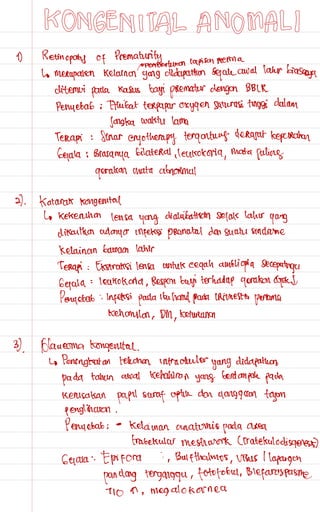 KONGENITAL ANOMALI
1) Retinopaty of Prematurity
*Pembentukan lapisan retina
↳ merupakan kelainan yang didapatkan sejak awal lahir biasanya
ditemui pada kasus bayi prematur dengan BBLR
Penyebab : Akibat terpapar oxygen saturasi tinggi dalam
jangka waktu lama
Terapi : Sinar cryotherapy tergantung derajat keparahan
Gejala : Biasanya bilateral, leukokoria, mata juling,
gerakan mata abnormal
2). Katarak Kongenital
↳ Kekeruhan lensa yang diakibatkan sejak lahir yang
dikaitkan adanya infeksi prenatal dan suatu sindrome
kelainan bawaan lahir
Terapi : Ekstraksi lensa untuk cegah ambliopia secepatnya
Gejala : leukokoria, Respon bayi terhadap gerakan objek ↓
Penyebab : Infeksi pada ibu hamil pada trimester pertama
kehamilan, DM, keturunan
3). Glaucoma kongenital.
↳ Peningkatan tekanan intraokuler yang didapatkan
pada tahun awal kehidupan yang berdampak pada
kerusakan papil saraf optik dan gangguan tajam
penglihatan.
Penyebab : - Kelainan anatomis pada area
trabekular meshwork (trabekulodisgenesis)
Gejala : Epifora , Bulfthalmos, Visus ↓ lapangan
pandang terganggu, fotofobia, Blefarospasme
TIO ↑, megalokornea